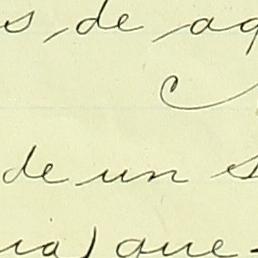 s, de aq
de un s
ua) que-